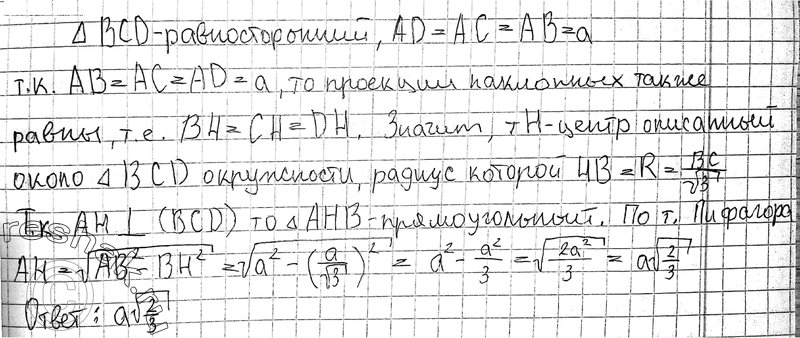 Δ BCD-равносторонний, AD = AC = AB = a
т.к. AB = AC = AD = a, то проекции наклонных также
равны, т.е. BH = CH = DH. Значит, т H-центр описанный
около Δ BCD окружности, радиус которой HB = R = BC/√3
Т.к. AH ⊥ (BCD) то Δ AHB-прямоугольный. По т. Пифагора
AH = √(AB² - BH²) = √(a² - (a/√3)²) = a² - a²/3 = √(2a²/3) = a√(2/3)
Ответ: a√(2/3)